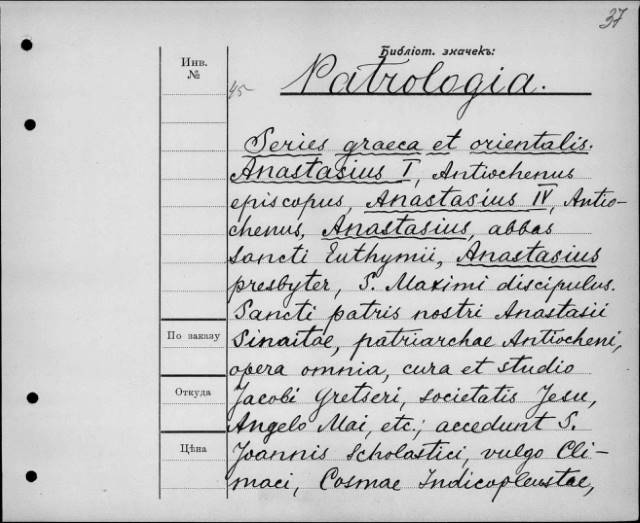 37
Библіот. значекъ:
Инв.
№
45
Patrologia.
Series graeca et orientalis.
Anastasius I, Antiochenus
episcopus, Anastasius IV, Antio-
chenus, Anastasius, abbas
sancti Euthymii, Anastasius
presbyter, S. Maximi discipulus.
Sancti patris nostri Anastasii
По заказу
Sinaitae, patriarchae Antiocheni,
opera omnia, cura et studio
Откуда
Jacobi Gretseri, societatis Jesu,
Angelo Mai, etc.; accedunt S.
Цѣна
Joannis Scholastici, vulgo Cli-
maci, Cosmae Indicopleustae,